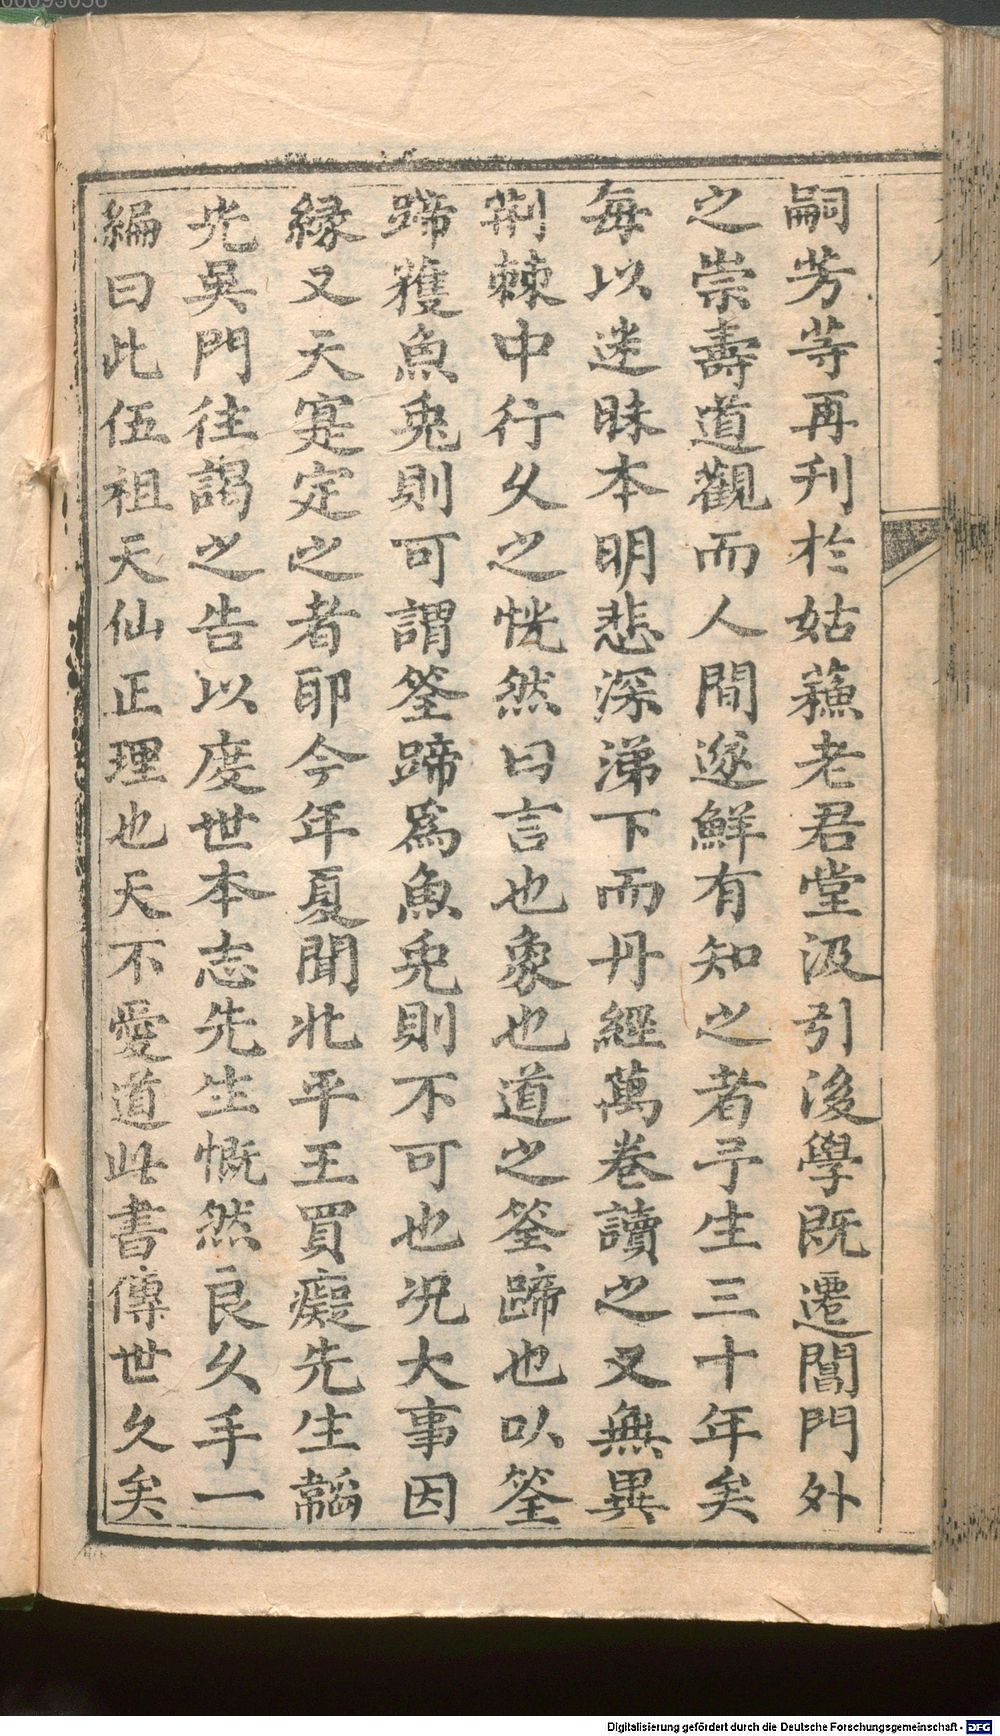 嗣芳等再刋於姑蘓老君堂汲引後學既遷閶門外
之崇壽道觀而人間遂鮮有知之者予生三十年矣
每以迷昧本明悲深涕下而丹經萬卷讀之又無異
荆棘中行乆之恍然曰言也象也道之筌蹄也以筌
蹄獲魚兎則可謂筌蹄爲魚兎則不可也况大事因
縁又天寔定之者耶今年夏聞北平王買癡先生韜
光吳門往謁之告以度世本志先生慨然良乆手一
編曰此伍祖天仙正理也天不愛道此書傳世久矣
00093058
Digitalisierung gefördert durch die Deutsche Forschungsgemeinschaft - DFG